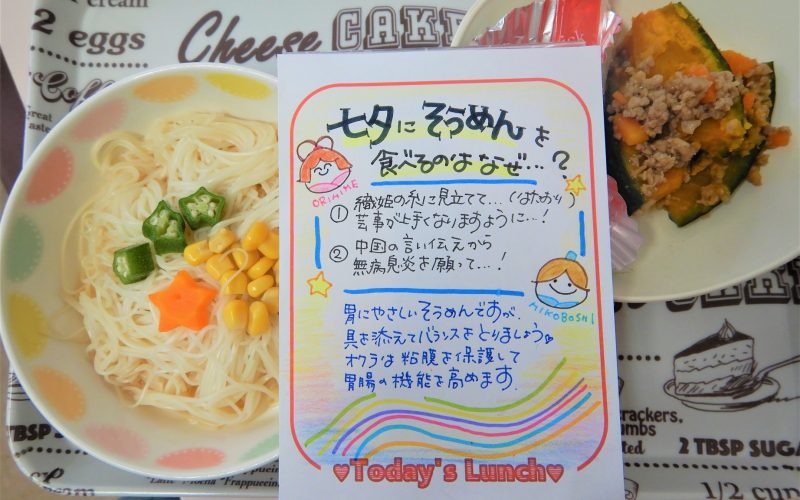 cream
2 eggs
Cheese CAKE
Coffee
Great
taste
七夕に そうめん を
食べるのは なぜ…?
ORIHIME
① 織姫の糸に見立てて…(はたおり)
芸事が上手くなりますように…!
② 中国の言い伝えから
無病息災を願って…!
HIKOBOSHI
胃にやさしいそうめんですが、
具を添えてバランスをとりましょう♥
オクラは粘膜を保護して
胃腸の機能を高めます。
♥Today's Lunch♥
TBSP SU
"Latte" "Mocha" "Frappuccino
cream
crackers.
2 TBSP SUGA
1/2 cup